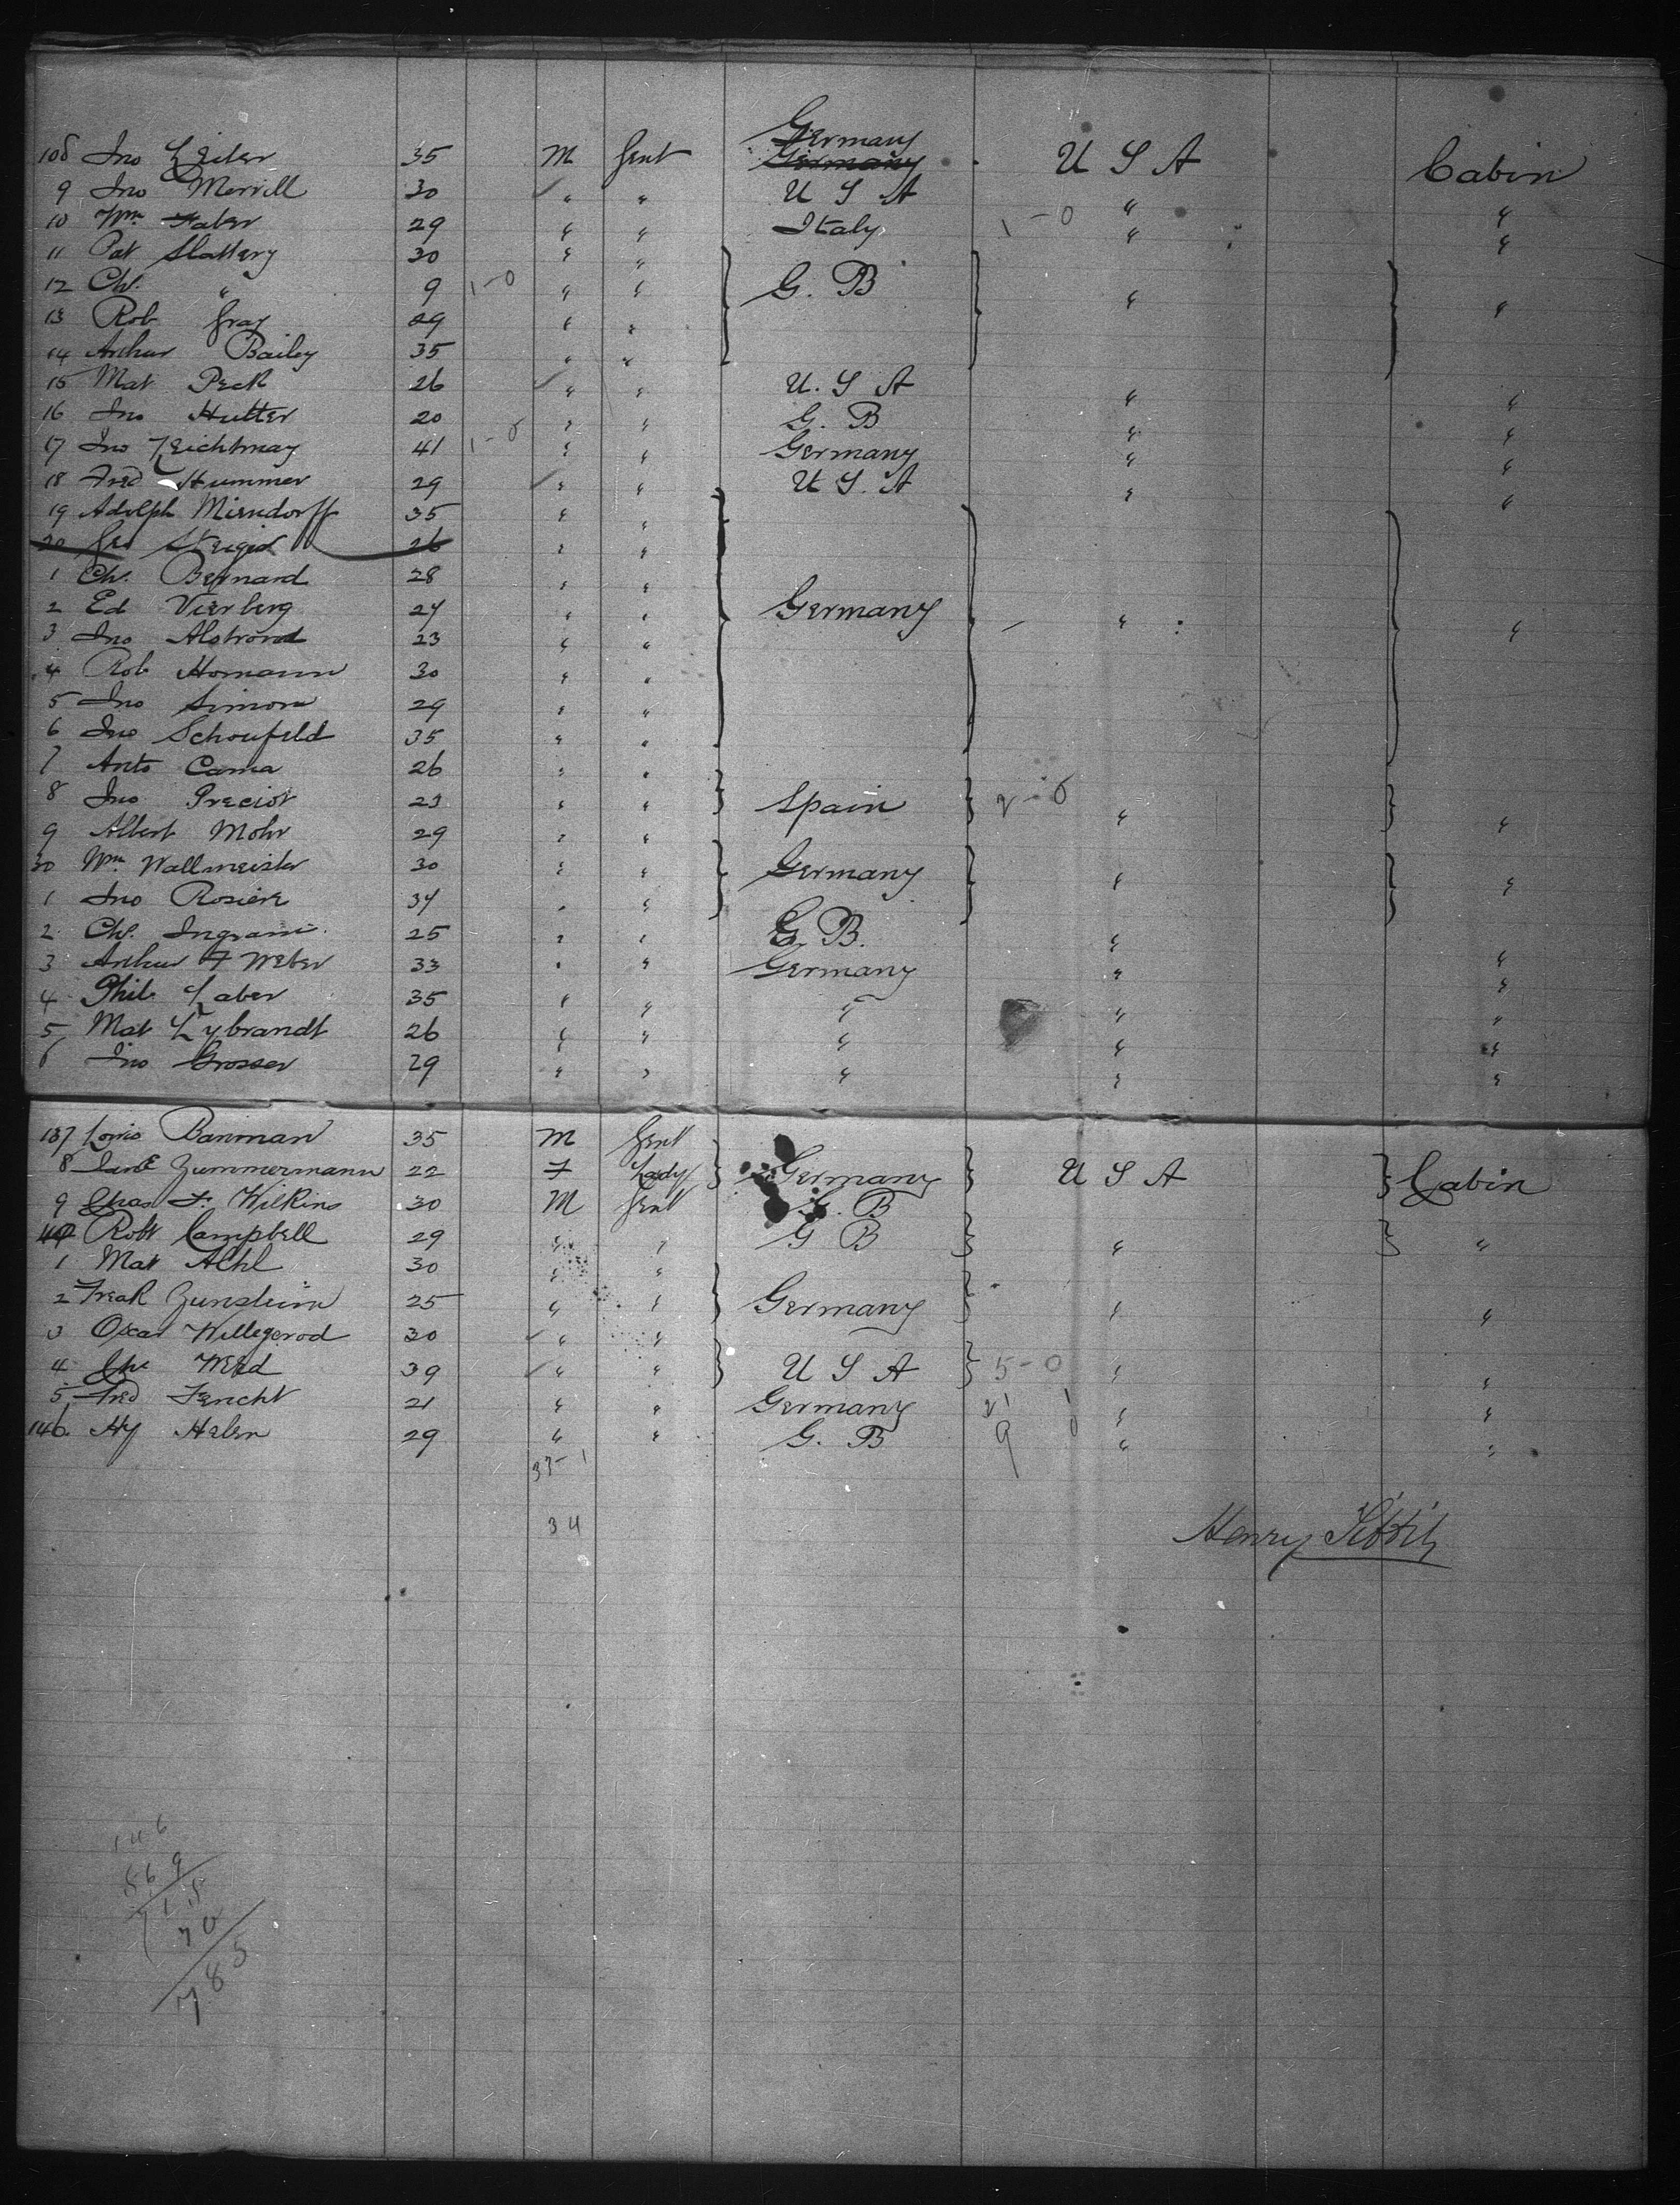 Germany
108 Jno Zeiler 35 M Gent Germany U S A Cabin
9 Jno Merrill 30 " " U S A " "
10 Wm Faber 29 " " Italy 1-0 " "
11 Pat Slattery 30 " "
12 Ch. " 9 1-0 " " G. B " "
13 Rob Gray 29 " "
14 Arthur Bailey 35 " "
15 Mat Peck 26 " " U. S A " "
16 Jno Hutter 20 " " G. B " "
17 Jno Zeichtmay 41 1-0 " " Germany " "
18 Fred Hummer 29 " " U S. A " "
19 Adolph Mierndorff 35 " "
20 Geo Steiger 26 " "
1 Ch. Bernard 28 " "
2 Ed Vierberg 24 " " Germany " "
3 Jno Alstrond 23 " "
4 Rob Homann 30 " "
5 Jno Simon 29 " "
6 Jno Schoufeld 35 " "
7 Anto Cama 26 " "
8 Jno Preciot 23 " " Spain 2-0 " "
9 Albert Mohr 29 " "
30 Wm Wallmeister 30 " " Germany " "
1 Jno Rosiere 34 " "
2 Ch. Ingram 25 " " G. B. " "
3 Arthur F Weber 33 " " Germany " "
4 Phil Laber 35 " " " " "
5 Mat Lybrandt 26 " " " " "
6 Jno Grosser 29 " " " " "
137 Louis Banman 35 M Gent
8 Jane Zummermann 22 F Lady Germany U S A Cabin
9 Chas F. Wilkins 30 M Gent G. B
40 Robt Campbell 29 " " G B " "
1 Mat Achl 30 " "
2 Freak Zunsteim 25 " " Germany " "
3 Oscar Willegerod 30 " "
4 Che Weed 39 " " U S A 5-0 " "
5 Fred Fercht 21 " " Germany 21 1 " "
146 Hy Helen 29 " " G. B 9 0 " "
33-1
34
Henry
146
569
715
70
785